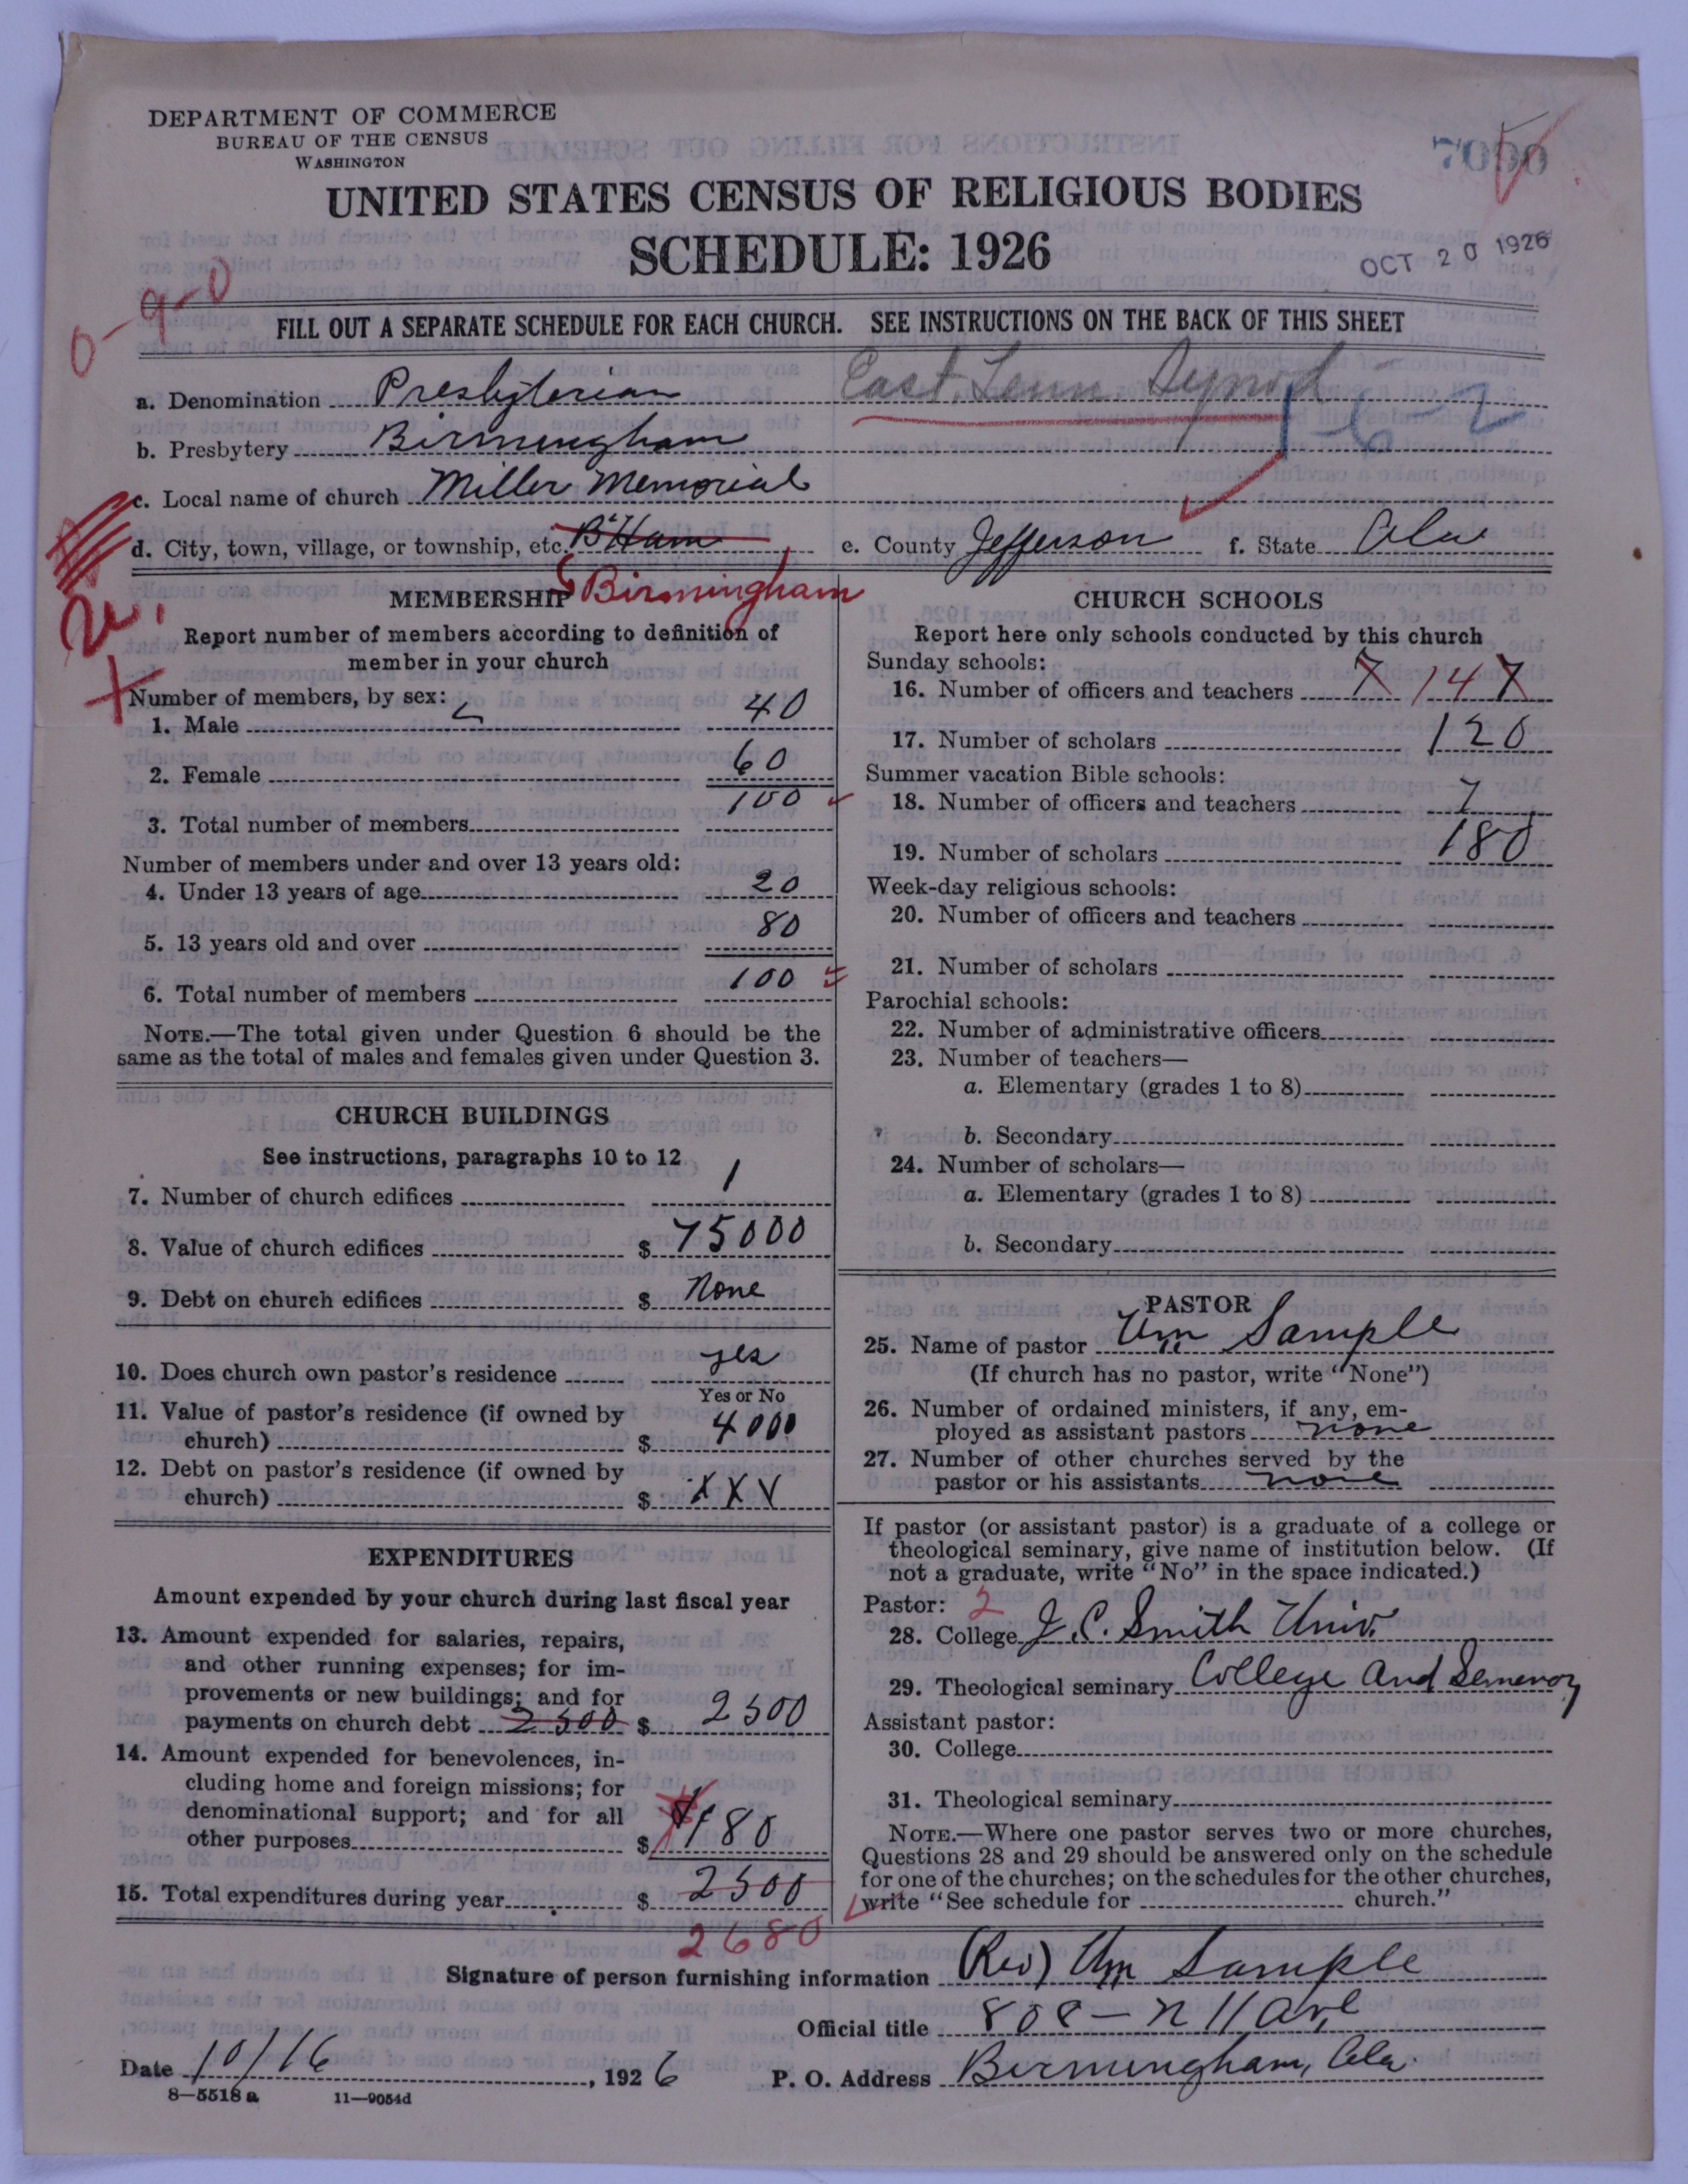 DEPARTMENT OF COMMERCE
BUREAU OF THE CENSUS
WASHINGTON
7090
UNITED STATES CENSUS OF RELIGIOUS BODIES
SCHEDULE: 1926
OCT 20 1926
0-9-0
FILL OUT A SEPARATE SCHEDULE FOR EACH CHURCH. SEE INSTRUCTIONS ON THE BACK OF THIS SHEET
a. Denomination Presbyterian East. Tenn. Synod
1-6-2
b. Presbytery Birmingham
c. Local name of church Miller Memorial
d. City, town, village, or township, etc. B'Ham e. County Jefferson f. State Ala
Birmingham
MEMBERSHIP
Report number of members according to definition of
member in your church
Number of members, by sex:
1. Male 40
2. Female 60
3. Total number of members 100
Number of members under and over 13 years old:
4. Under 13 years of age 20
5. 13 years old and over 80
6. Total number of members 100
NOTE.—The total given under Question 6 should be the
same as the total of males and females given under Question 3.
CHURCH BUILDINGS
See instructions, paragraphs 10 to 12
7. Number of church edifices 1
8. Value of church edifices $ 75000
9. Debt on church edifices $ None
10. Does church own pastor's residence yes
Yes or No
11. Value of pastor's residence (if owned by
church) $ 4000
12. Debt on pastor's residence (if owned by
church) $ XXX
EXPENDITURES
Amount expended by your church during last fiscal year
13. Amount expended for salaries, repairs,
and other running expenses; for im-
provements or new buildings; and for
payments on church debt 2500 $ 2500
14. Amount expended for benevolences, in-
cluding home and foreign missions; for
denominational support; and for all
other purposes $ 180
15. Total expenditures during year $ 2500
2680
CHURCH SCHOOLS
Report here only schools conducted by this church
Sunday schools:
16. Number of officers and teachers 7 14 7
17. Number of scholars 120
Summer vacation Bible schools:
18. Number of officers and teachers 7
19. Number of scholars 180
Week-day religious schools:
20. Number of officers and teachers
21. Number of scholars
Parochial schools:
22. Number of administrative officers
23. Number of teachers—
a. Elementary (grades 1 to 8)
b. Secondary
24. Number of scholars—
a. Elementary (grades 1 to 8)
b. Secondary
PASTOR
25. Name of pastor Wm Sample
(If church has no pastor, write "None")
26. Number of ordained ministers, if any, em-
ployed as assistant pastors none
27. Number of other churches served by the
pastor or his assistants none
If pastor (or assistant pastor) is a graduate of a college or
theological seminary, give name of institution below. (If
not a graduate, write "No" in the space indicated.)
Pastor: 2
28. College J. C. Smith Univ.
29. Theological seminary College and Semenory
Assistant pastor:
30. College
31. Theological seminary
NOTE.—Where one pastor serves two or more churches,
Questions 28 and 29 should be answered only on the schedule
for one of the churches; on the schedules for the other churches,
write "See schedule for church."
Signature of person furnishing information (Rev) Wm Sample
Official title 808 - N 11 ave
Date 10/16, 1926 P. O. Address Birmingham, Ala.
8—5518 a 11—9054d